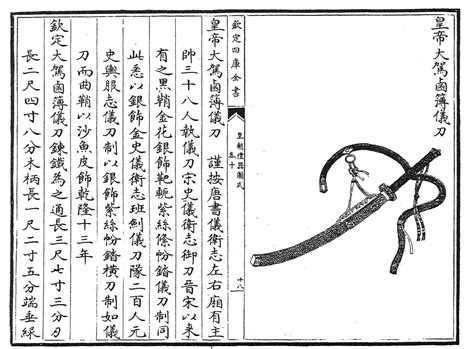 皇帝大駕鹵簿儀刀
欽定四庫全書
皇朝禮器圖式
卷十
十八
皇帝大駕鹵簿儀刀 謹按唐書儀衛志左右廂有主
帥三十八人執儀刀宋史儀衛志御刀晉宋以來
有之黑鞘金花銀飾靶軛紫絲絛帉錔儀刀制同
此悉以銀飾金史儀衛志班劍儀刀隊二百人元
史輿服志儀刀制以銀飾紫絲帉錔橫刀制如儀
刀而曲鞘以沙魚皮飾乾隆十三年
欽定大駕鹵簿儀刀鍊鐵為之通長三尺七寸三分刃
長二尺四寸八分木柄長一尺二寸五分端垂綠